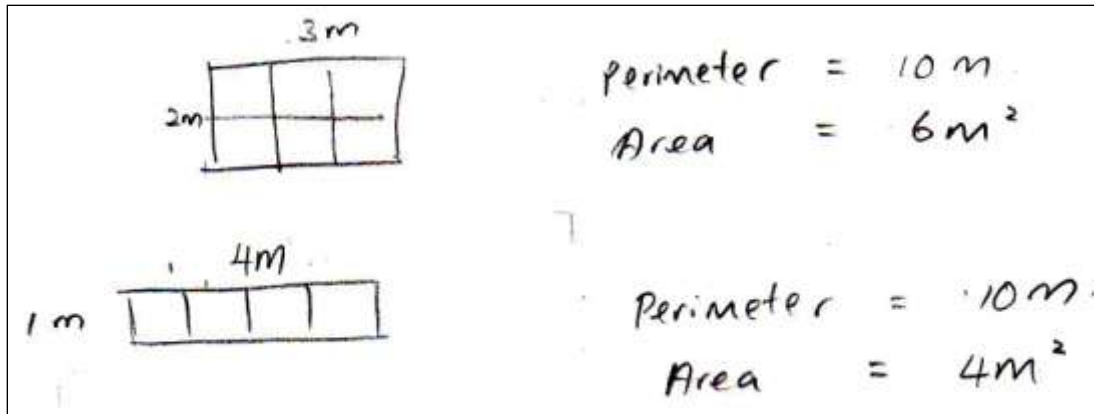 3m
2m
Perimeter = 10 m
Area = 6m²
4m
1 m
Perimeter = 10m
Area = 4m²